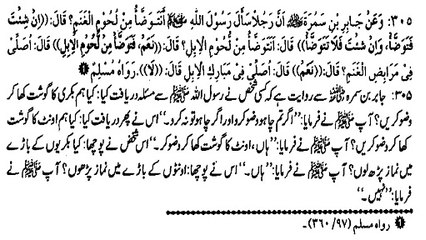 ۳۰۵: وَعَنْ جَابِرِ بْنِ سَمُرَةَ ﷺ، اَنَّ رَجُلًا سَاَلَ رَسُوْلَ اللّٰهِ ﷺ اَنَتَوَضَّاُ مِنْ لُحُوْمِ الْغَنَمِ؟ قَالَ: ((اِنْ شِئْتَ
فَتَوَضَّأْ، وَاِنْ شِئْتَ فَلَا تَتَوَضَّأْ)) قَالَ: اَنَتَوَضَّأُ مِنْ لُحُوْمِ الْاِبِلِ؟ قَالَ: ((نَعَمْ، فَتَوَضَّأْ مِنْ لُحُوْمِ الْاِبِلِ)) قَالَ: اُصَلِّيْ
فِيْ مَرَابِضِ الْغَنَمِ؟ قَالَ: ((نَعَمْ)) قَالَ: اُصَلِّيْ فِيْ مَبَارِكِ الْاِبِلِ؟ قَالَ: ((لَا)). رَوَاهُ مُسْلِمٌ ❶
۳۰۵: جابر بن سمرہ سے روایت ہے کہ کسی شخص نے رسول اللہ ﷺ سے مسئلہ دریافت کیا: کیا ہم بکری کا گوشت کھا کر
وضو کریں؟ آپ ﷺ نے فرمایا: ”اگر تم چاہو وضو کر لو اور اگر چاہو تو نہ کرو۔“ اس نے پھر دریافت کیا: کیا ہم اونٹ کا گوشت
کھا کر وضو کریں؟ آپ ﷺ نے فرمایا: ”ہاں، اونٹ کا گوشت کھا کر وضو کرو۔“ اس نے پوچھا: کیا بکریوں کے باڑے
میں نماز پڑھ لوں؟ آپ ﷺ نے فرمایا: ”ہاں۔“ اس نے پوچھا: اونٹوں کے باڑے میں نماز پڑھوں؟ آپ ﷺ نے
فرمایا: ”نہیں۔“
❶ رواه مسلم (۹۷/ ۳۶۰)۔